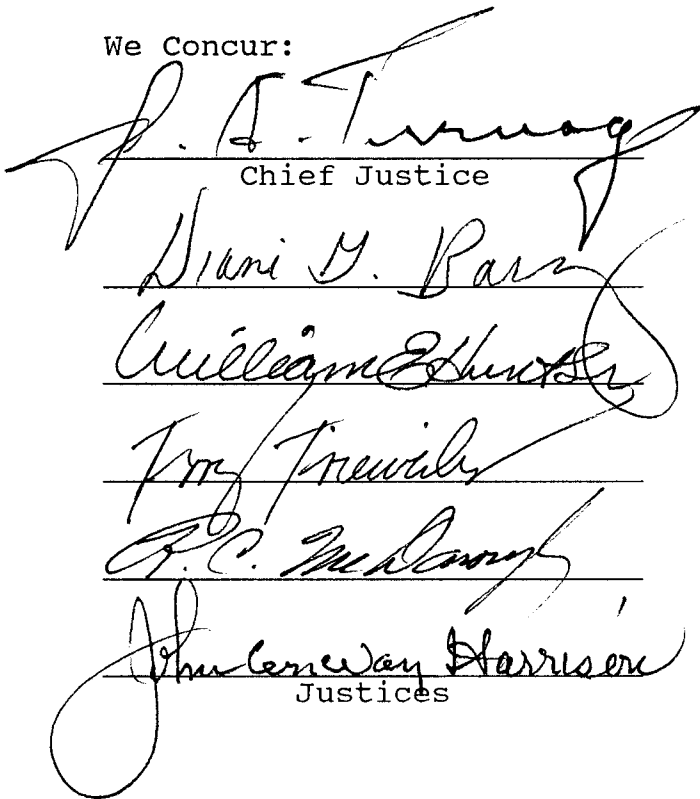 We Concur:
J. A. Turnage
Chief Justice
Diane G. Barz
William E Hunt Sr
Terry Trieweiler
R. C. McDonough
John Conway Harrison
Justices